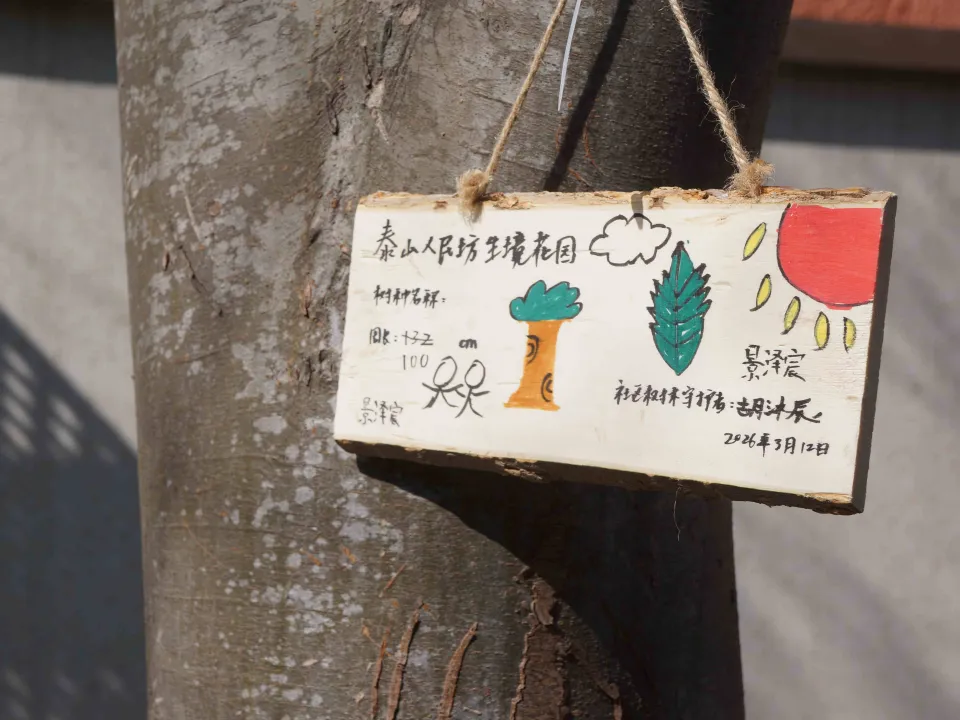 泰山人民坊生境花园
树种名称：
周长：132 cm
100
景泽宸
景泽宸
社区树木守护者：胡沐辰
2026年3月12日